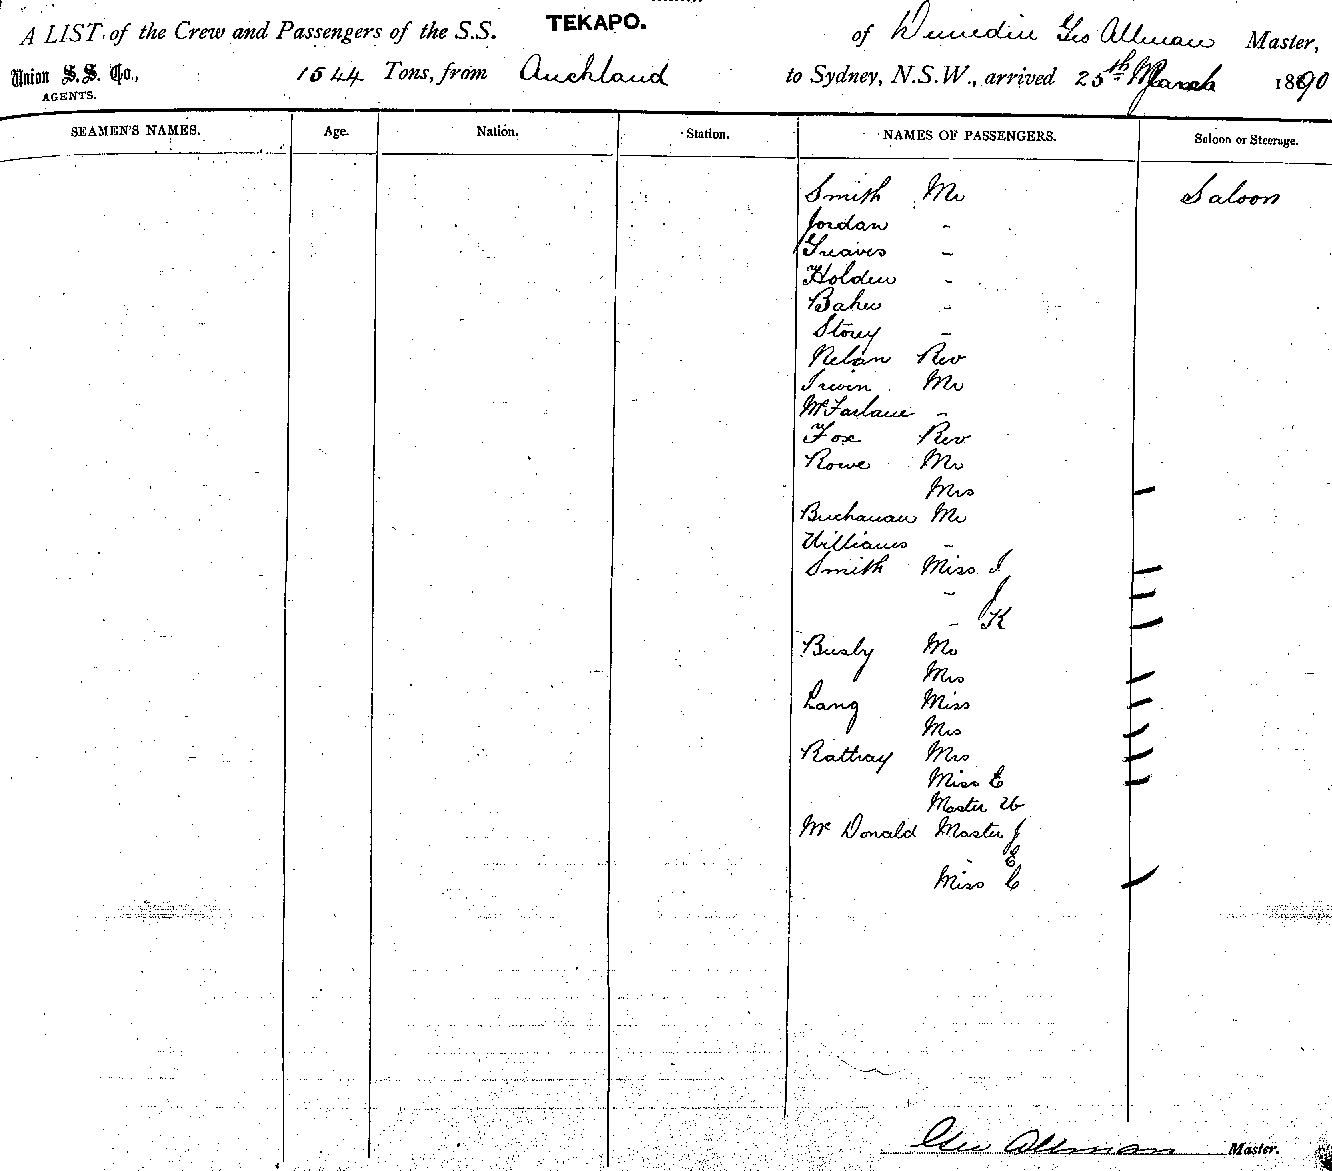 A LIST of the Crew and Passengers of the S.S. TEKAPO. of Dunedin Geo Allman Master,
Union S.S. Co., 1544 Tons, from Auckland to Sydney, N.S.W., arrived 25th March 1890
AGENTS.
SEAMEN'S NAMES. Age. Nation. Station. NAMES OF PASSENGERS. Saloon or Steerage.
Smith Mr Saloon
Jordan -
Greaves -
Holden -
Baker -
Storey -
Nelan Rev
Irwin Mr
McFarlane -
Fox Rev
Rowe Mr
Mrs
Buchanan Mr
Williams -
Smith Miss I
- J
- K
Busby Mr
Mrs
Lang Miss
Mrs
Rattray Mrs
Miss E
Master W
McDonald Master J
- E
Miss C
Geo Allman Master.